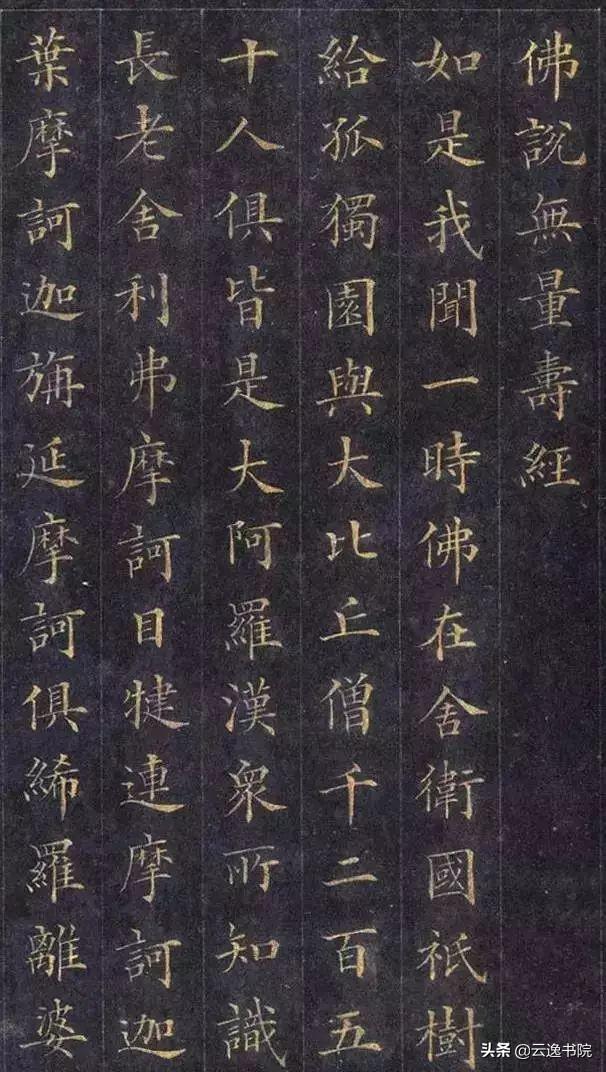 佛說無量壽經
如是我聞一時佛在舍衛國祇樹
給孤獨園與大比丘僧千二百五
十人俱皆是大阿羅漢衆所知識
長老舍利弗摩訶目犍連摩訶迦
葉摩訶迦旃延摩訶俱絺羅離婆
头条 @云逸书院